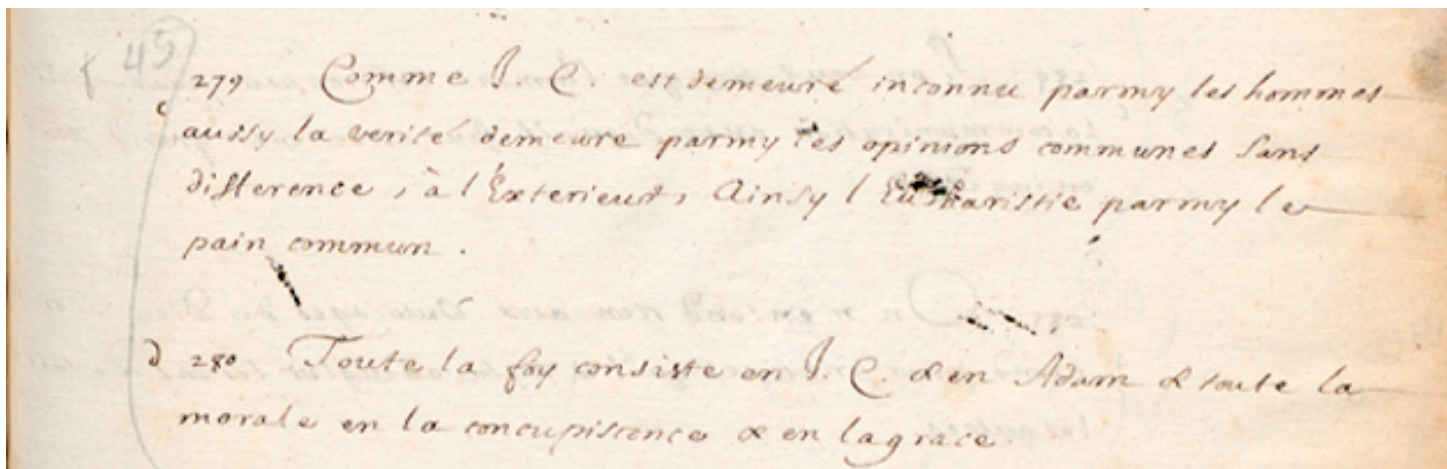 45
279 Comme J. C. est demeuré inconnu parmy les hommes
c
aussy la verité demeure parmy les opinions communes sans
difference, à l'Exterieur, Ainsy l'Eucharistie parmy le
pain commun.
d 280 Toute la foy consiste en J. C. & en Adam & toute la
morale en la concupiscence & en la grace